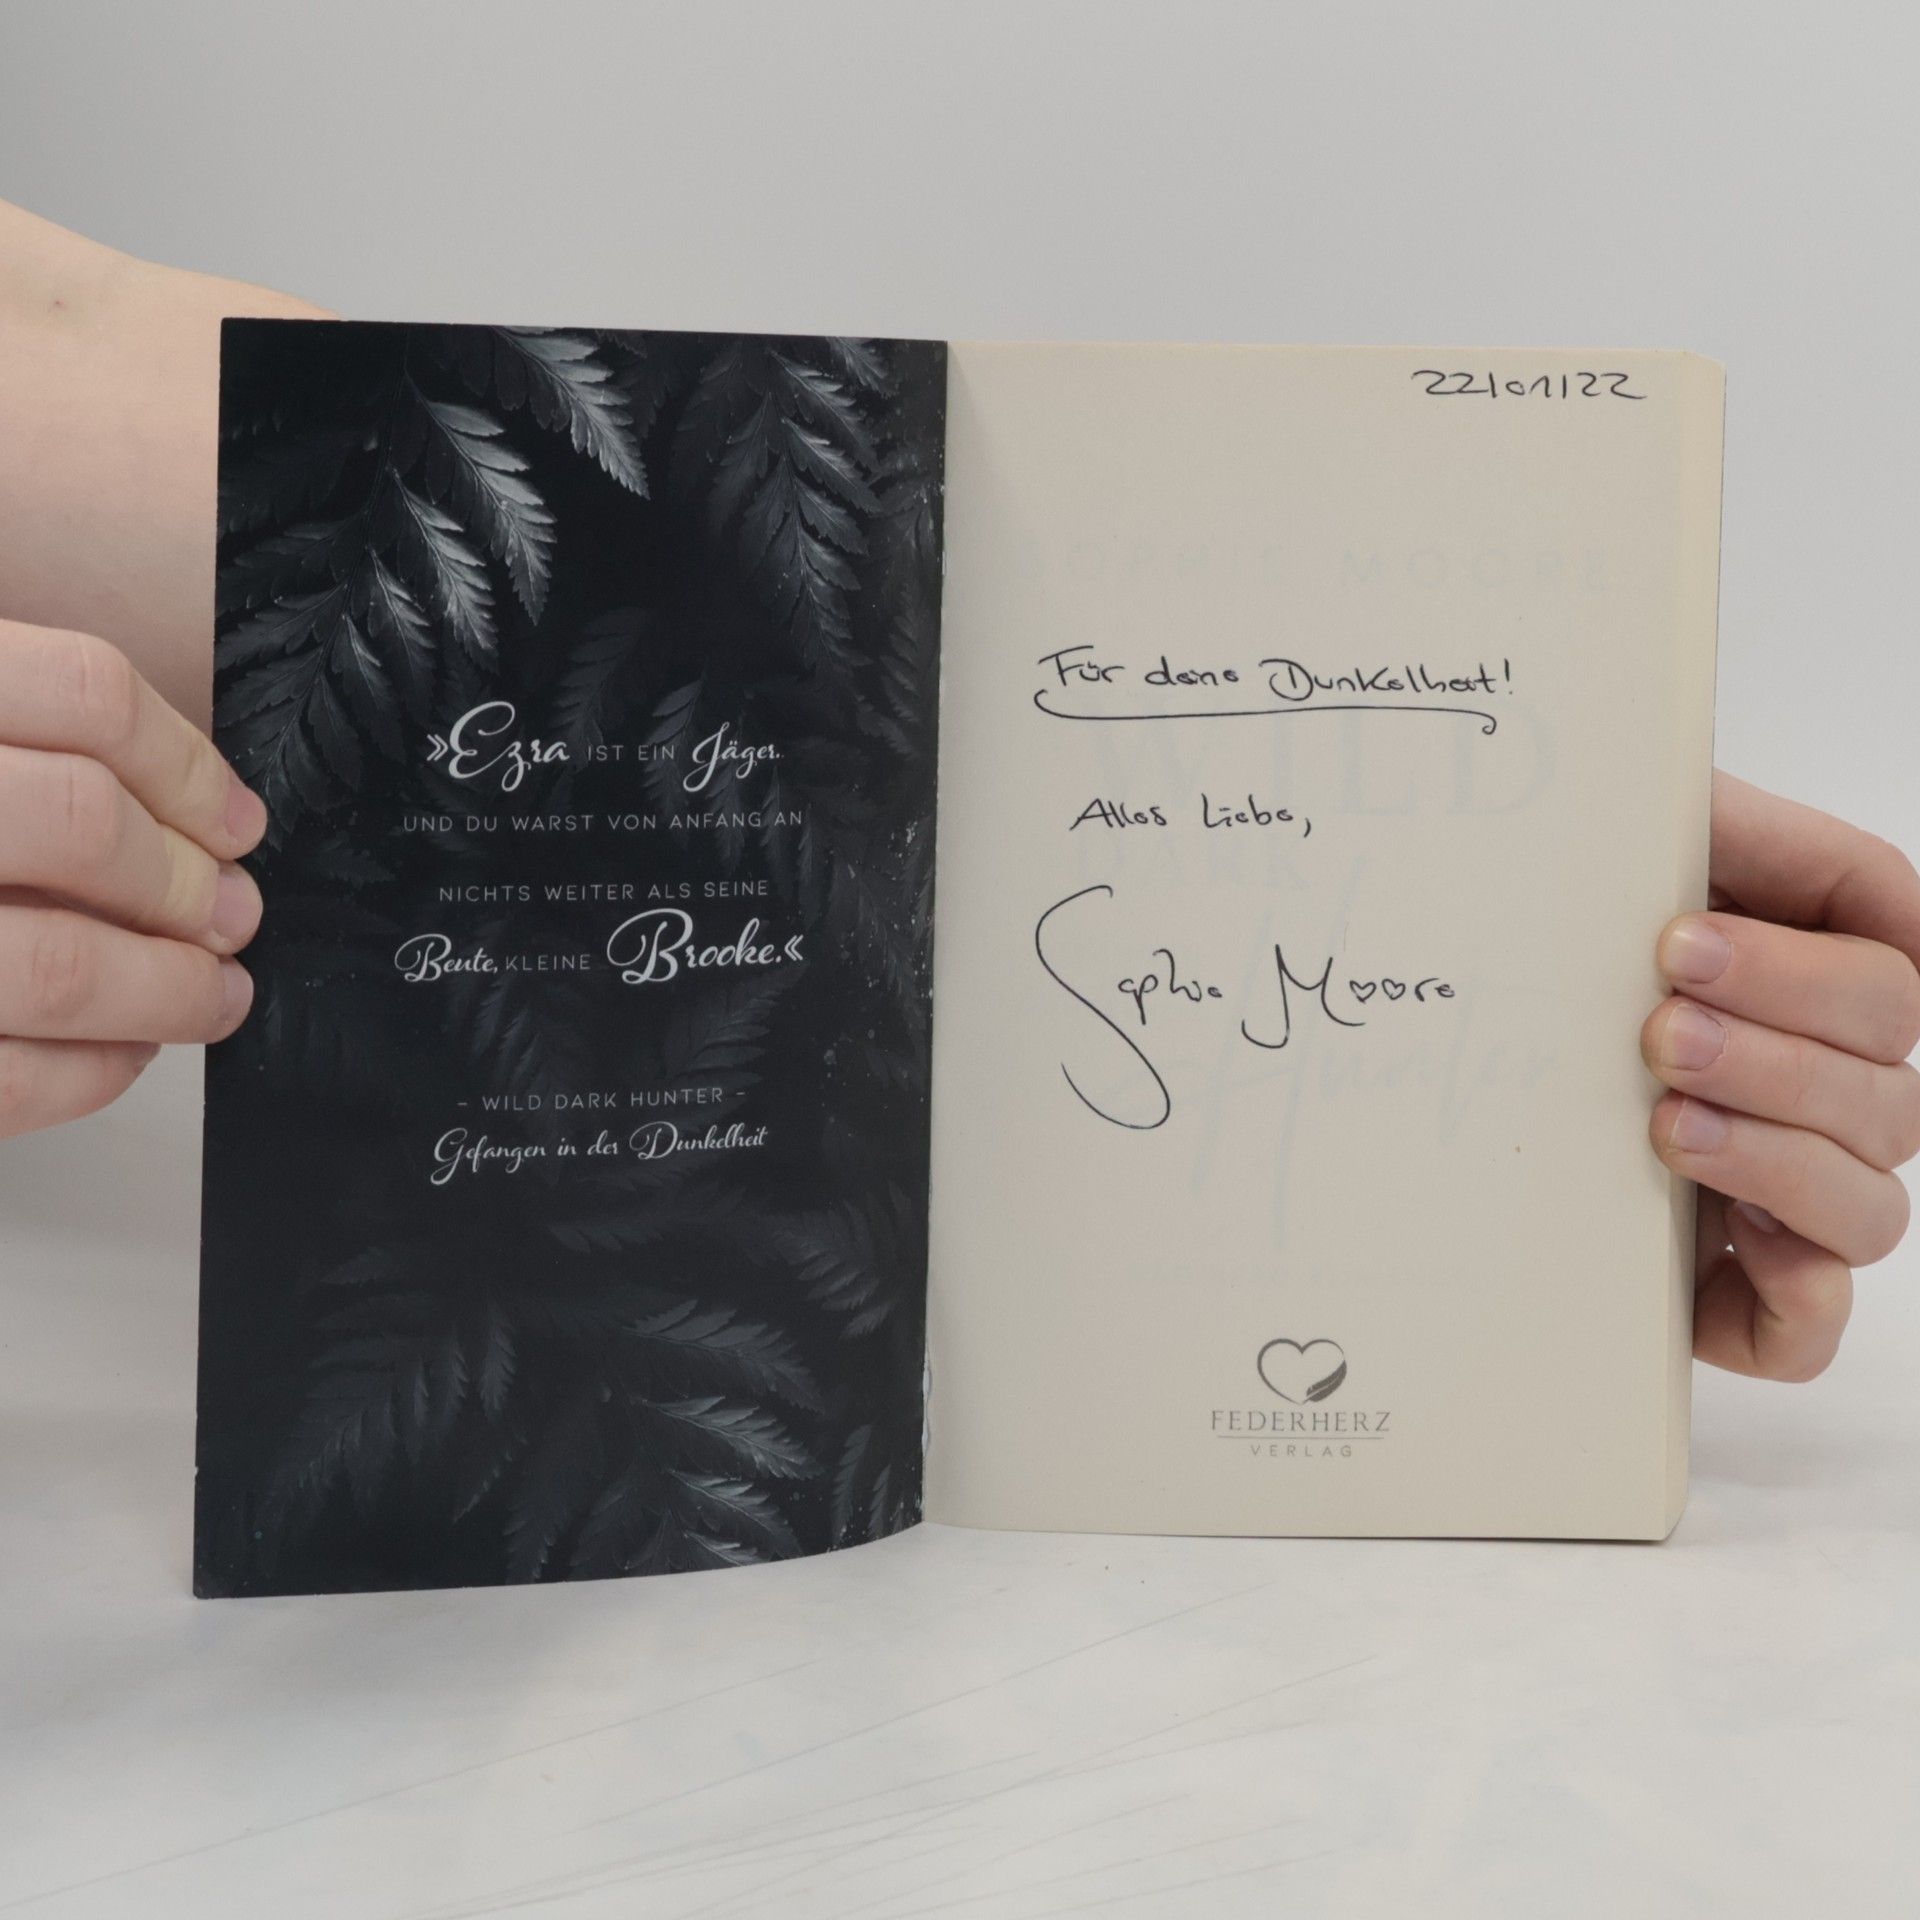 »Ezra IST EIN Jäger.
UND DU WARST VON ANFANG AN
NICHTS WEITER ALS SEINE
Beute, KLEINE Brooke.«
- WILD DARK HUNTER -
Gefangen in der Dunkelheit
22|01|22
SOPHIE MOORE
Für deine Dunkelheit!
WILD
DARK
Alles Liebe,
Sophie Moore
Hunter
FEDERHERZ
VERLAG